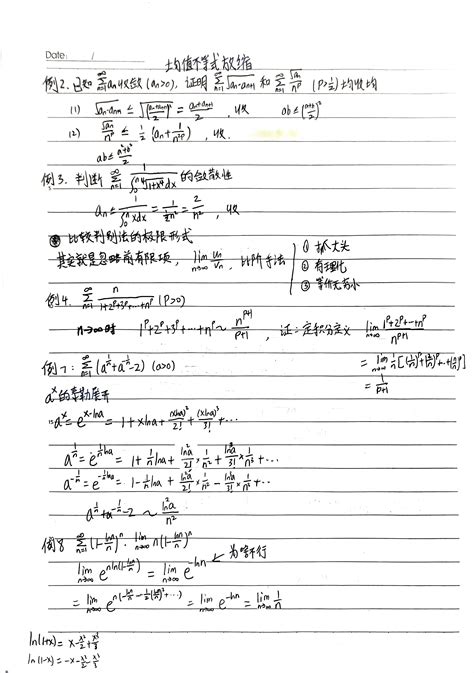 Date: /
均值不等式放缩
例2. 已知 ∑_{n=1}^{∞} an 收敛 (an>0), 证明 ∑_{n=1}^{∞} √(an·an+1) 和 ∑_{n=1}^{∞} √an/n^p (P>1/2) 均收敛
(1) √(an·an+1) ≤ √((an+an+1)/2)² = (an+an+1)/2, 收 ab≤((a+b)/2)²
(2) √an/n^p ≤ 1/2 (an + 1/n^{2p}), 收.
ab≤(a²+b²)/2
例3. 判断 ∑_{n=1}^{∞} 1/∫_0^n ⁴√(1+x⁴)dx 的敛散性
an ≤ 1/∫_0^n xdx = 1/(½n²) = 2/n², 收
比较判别法的极限形式
其实就是忽略前有限项, lim_{n→∞} un/vn, 比阶方法
① 抓大头
② 有理化
③ 等价无穷小
例4. ∑_{n=1}^{∞} n/(1+2^p+3^p+…+n^p) (P>0)
n→∞时 1^p+2^p+3^p+…+n^p ~ n^{p+1}/(p+1), 证: 定积分定义 lim_{n→∞} (1^p+2^p+…+n^p)/n^{p+1}
= lim_{n→∞} 1/n[(1/n)^p+(2/n)^p+…+(n/n)^p]
= 1/(p+1)
例7: ∑_{n=1}^{∞} (a^{1/n}+a^{-1/n}-2) (a>0)
a^x 的泰勒展开
a^x = e^{x·lna} = 1+xlna+(xlna)²/2!+(xlna)³/3!+…
a^{1/n} = e^{(1/n)lna} = 1+(1/n)lna+ln²a/2!×1/n²+ln³a/3!×1/n³+…
a^{-1/n} = e^{-(1/n)lna} = 1-(1/n)lna+ln²a/2!×1/n²-ln³a/3!×1/n³+…
a^{1/n}+a^{-1/n}-2 ~ ln²a/n²
例8 ∑_{n=1}^{∞} (1-lnn/n)^n. lim_{n→∞} n(1-lnn/n)^n
lim_{n→∞} e^{nln(1-lnn/n)} = lim_{n→∞} e^{-lnn} ← 为啥不行
= lim_{n→∞} e^{n(-lnn/n-½(lnn/n)²+…)} = lim_{n→∞} e^{-lnn} = lim_{n→∞} 1/n
ln(1+x)= x-x²/2+x³/3
ln(1-x)=-x-x²/2-x³/3